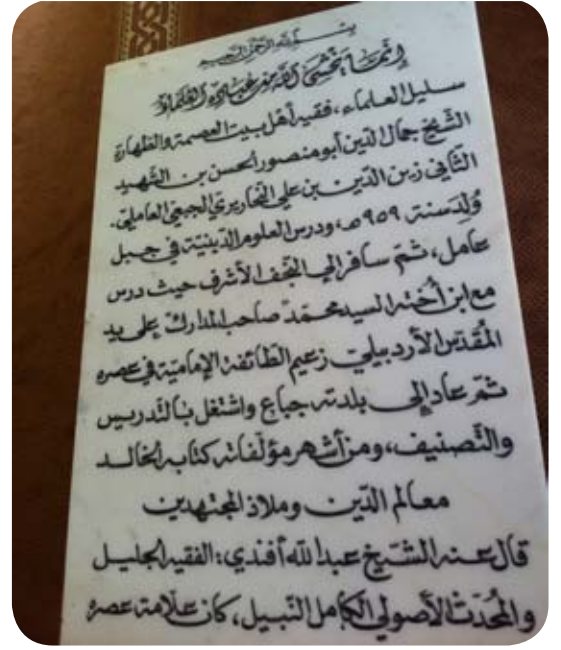 بسم الله الرحمن الرحيم
إنما يخشى الله من عباده العلماء
سليل العلماء، فقيه أهل بيت العصمة والطهارة
الشيخ جمال الدين أبو منصور الحسن بن الشهيد
الثاني زين الدين بن علي النحاريري الجبعي العاملي.
وُلِدَ سنة ٩٥٩ هـ، ودرس العلوم الدينية في جبل
عامل، ثمّ سافر إلى النجف الأشرف حيث درس
مع ابن أخته السيد محمّد صاحب المدارك على يد
المُقدّس الأردبيلي زعيم الطائفة الإمامية في عصره
ثمّ عاد إلى بلدته جباع واشتغل بالتدريس
والتّصنيف، ومن أشهر مؤلّفاته كتابه الخالد
معالم الدّين وملاذ المجتهدين
قال عنه الشّيخ عبد الله أفندي: الفقيه الجليل
والمُحدّث الأصولي الكامل النّبيل، كان علّامة عصره